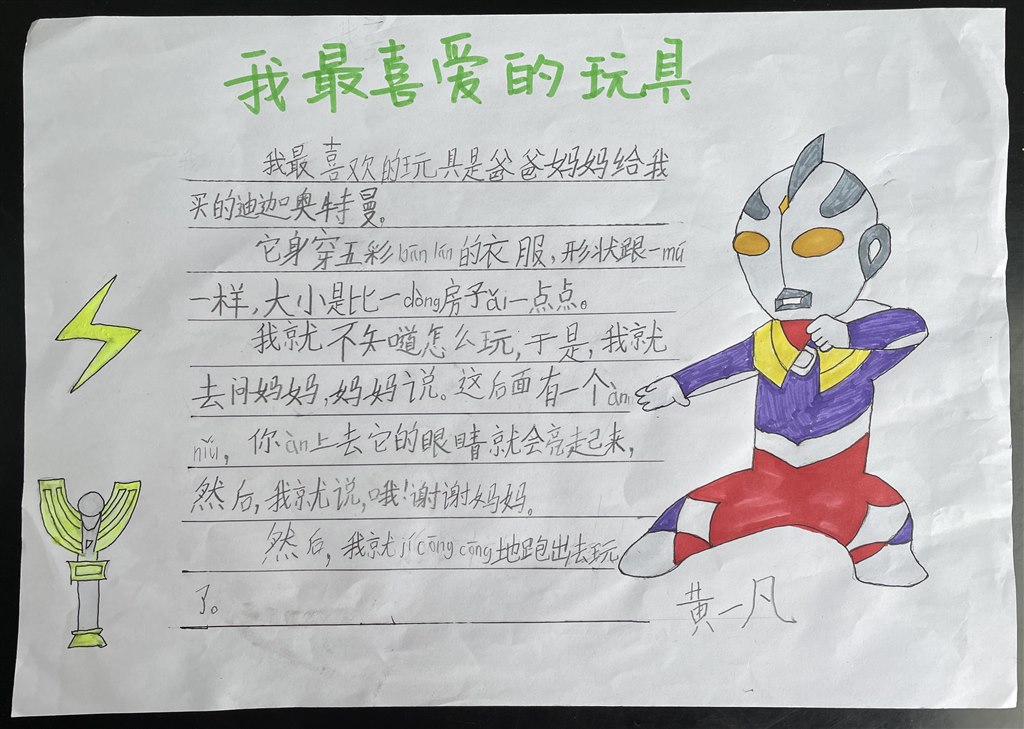 我最喜爱的玩具
我最喜欢的玩具是爸爸妈妈给我
买的迪迦奥特曼。
它身穿五彩bān lán的衣服,形状跟一mú
一样,大小是比一dòng房子ǎi一点点。
我就不知噵怎么玩,于是,我就
去问妈妈,妈妈说。这后面有一个àn
niǔ,你àn上去它的眼睛就会亮走起来,
然后,我就说,哦!谢谢妈妈。
然后,我就jí cōng cōng地跑出去玩
了。
黄一凡